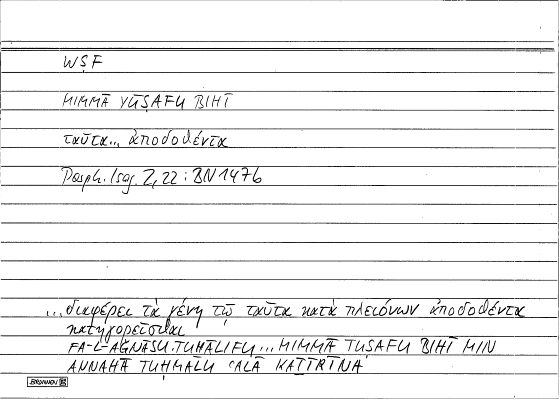 WṢF
MIMMĀ YŪṢAFU BIHĪ
ταῦτα... ἀποδοθέντα
Porph. Isag. 2, 22 : BN 1476
...διαφέρει τὰ γένη τῷ ταῦτα κατὰ πλειόνων ἀποδοθέντα
κατηγορεῖσθαι
FA-L-AǦNĀSU TUḪĀLIFU... MIMMĀ TŪṢAFU BIHĪ MIN
ANNAHĀ TUḤMALU ʿALĀ KAṮĪRĪNA
BRUNNEN